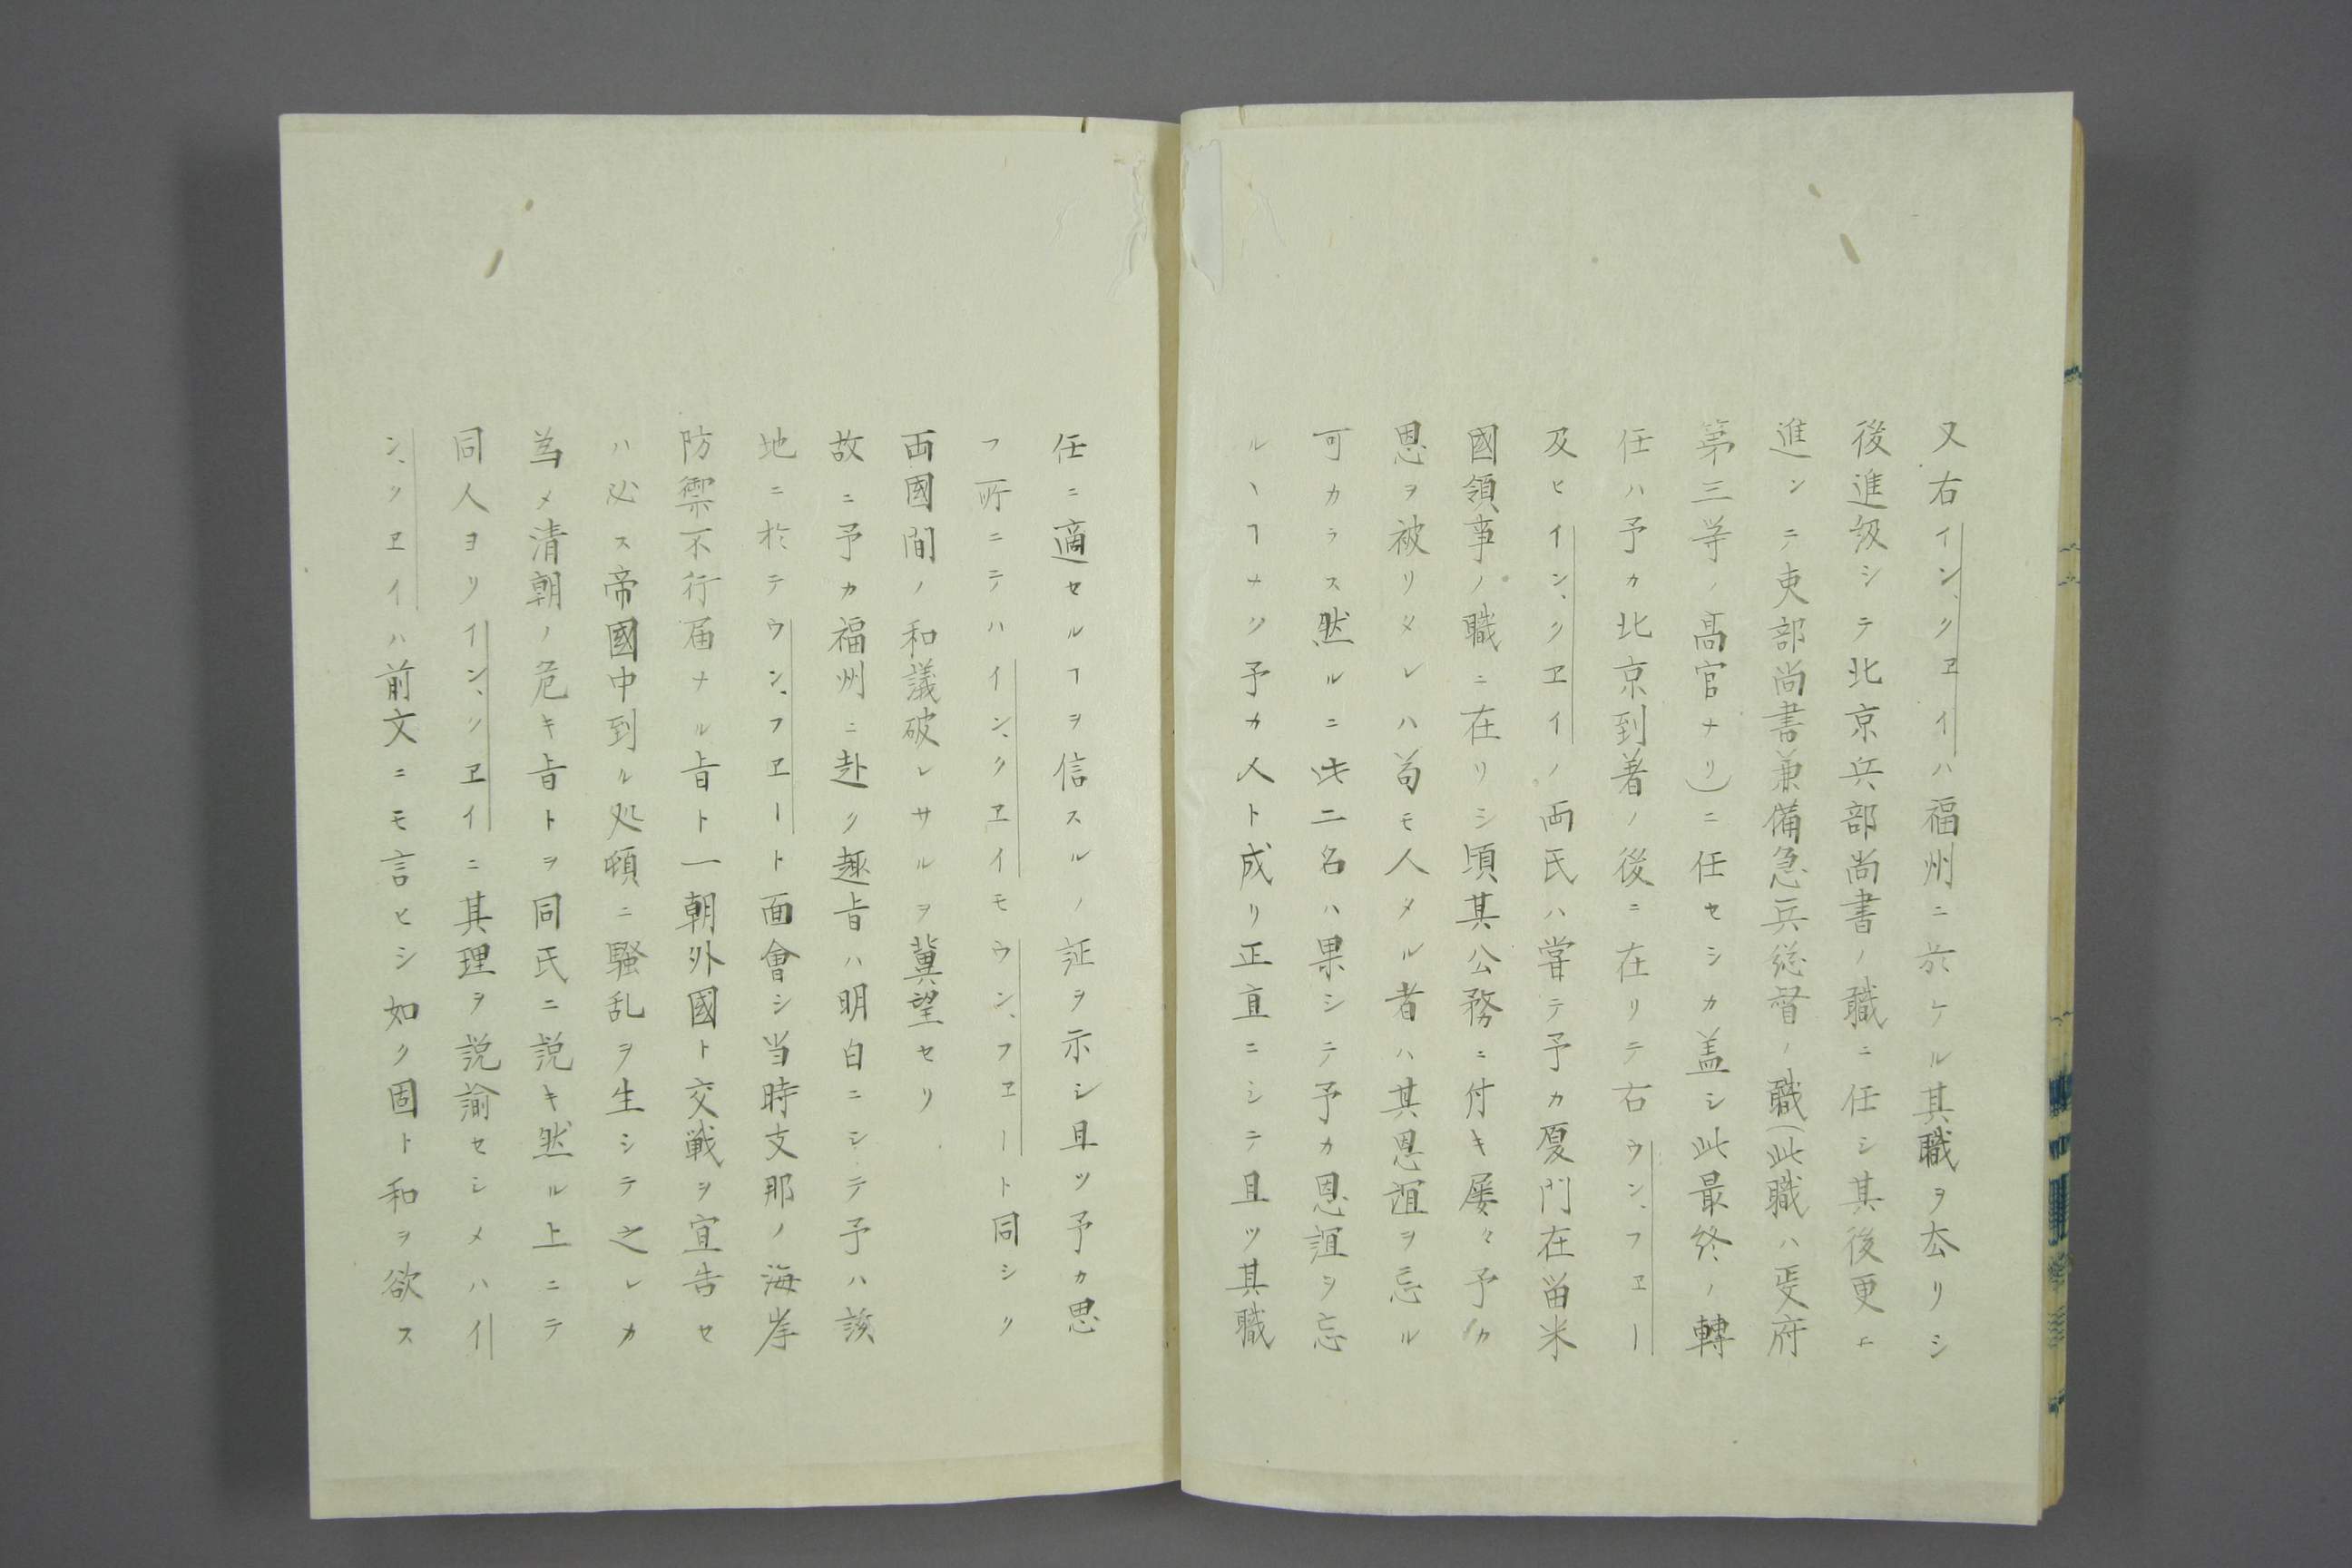 又右イン、クヱイハ福州ニ於ケル其職ヲ去リシ
後進級シテ北京兵部尚書ノ職ニ任シ其後更ニ
進ンテ吏部尚書兼備急兵総督ノ職(此職ハ政府
第三等ノ高官ナリ)ニ任セシカ盖シ此最終ノ轉
任ハ予カ北京到着ノ後ニ在リテ右ウン、フヱー
及ヒイン、クヱイノ両氏ハ嘗テ予カ厦門在留米
國領事ノ職ニ在リシ頃其公務ニ付キ屡々予カ
恩ヲ被リタレハ苟モ人タル者ハ其恩誼ヲ忘ル
可カラス然ルニ此二名ハ果シテ予カ恩誼ヲ忘
ルヽヿナク予カ人ト成リ正直ニシテ且ツ其職
任ニ適セルヿヲ信スルノ証ヲ示シ且ツ予カ思
フ所ニテハイン、クヱイモウン、フヱート同シク
両國間ノ和議破レサルヲ冀望セリ
故ニ予カ福州ニ赴ク趣旨ハ明白ニシテ予ハ該
地ニ於テウン、フヱート面會シ当時支那ノ海岸
防禦不行届ナル旨ト一朝外國ト交戦ヲ宣告セ
ハ必ス帝國中到ル処頓ニ騒乱ヲ生シテ之レカ
為メ清朝ノ危キ旨トヲ同氏ニ説キ然ル上ニテ
同人ヨリイン、クヱイニ其理ヲ説諭セシメハイ
ン、クヱイハ前文ニモ言ヒシ如ク固ト和ヲ欲ス